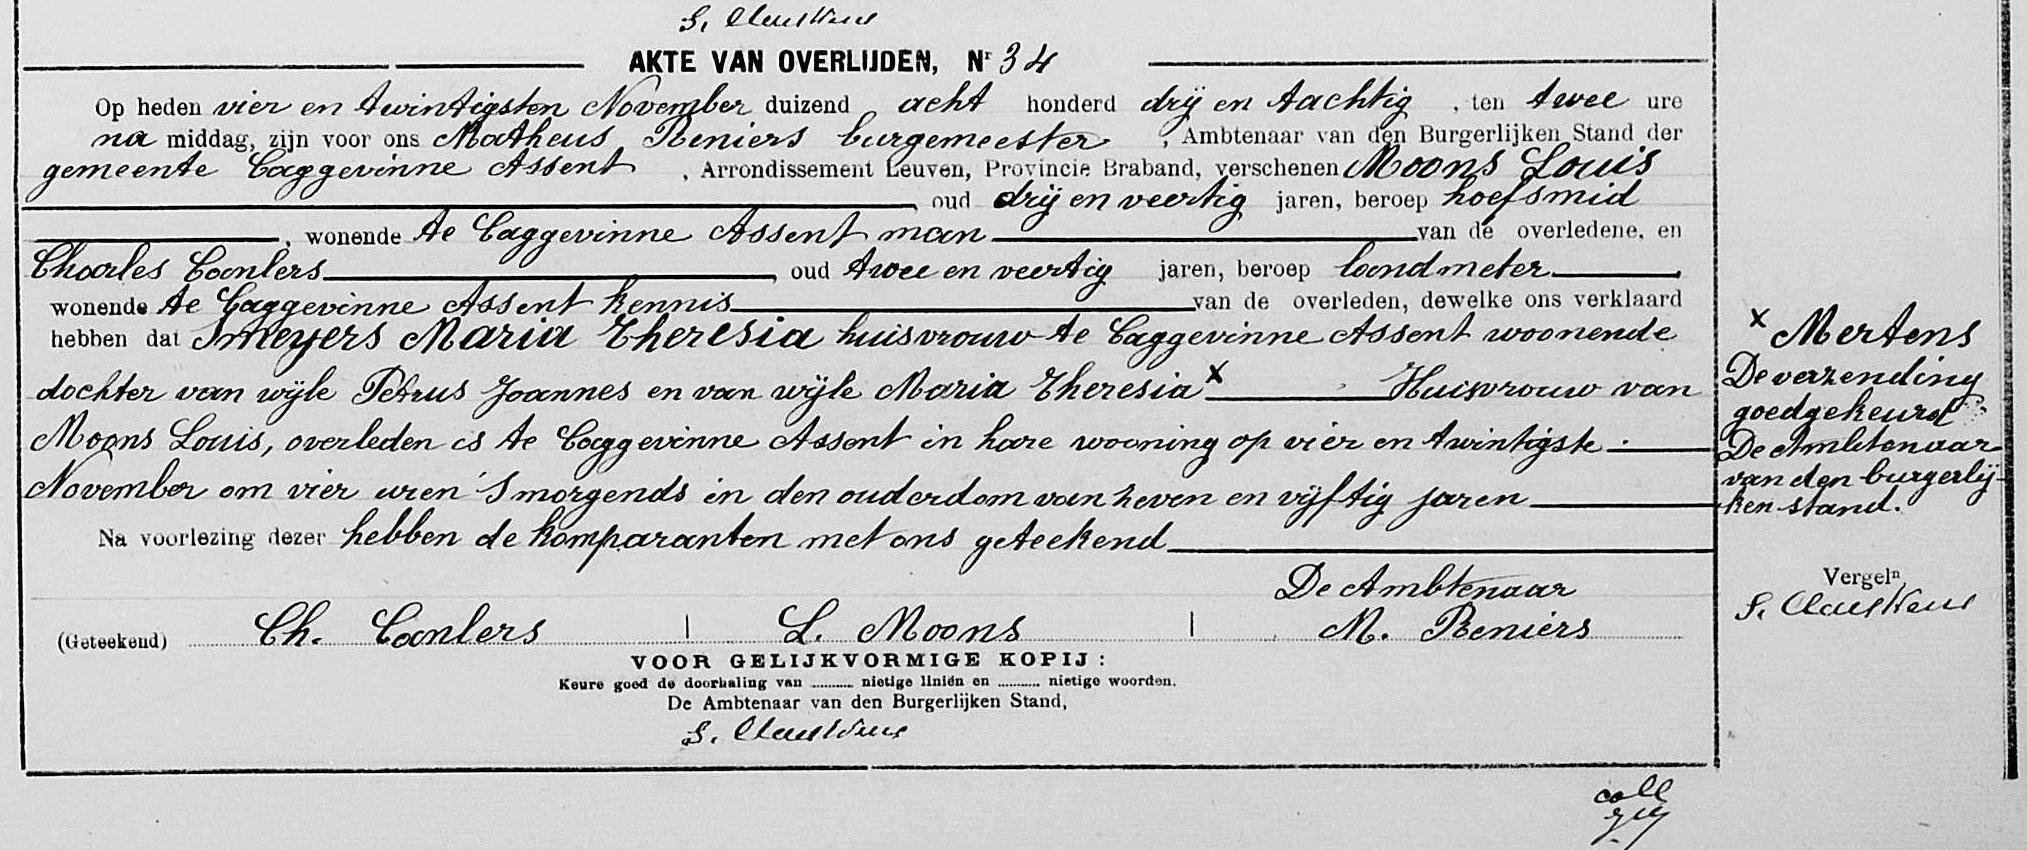 S. Claeskens
AKTE VAN OVERLIJDEN, Nr 34
Op heden vier en twintigsten November duizend acht honderd drij en tachtig, ten twee ure
na middag, zijn voor ons Matheus Reniers burgemeester, Ambtenaar van den Burgerlijken Stand der
gemeente Caggevinne Assent, Arrondissement Leuven, Provincie Braband, verschenen Moons Louis
oud drij en veertig jaren, beroep hoefsmid
, wonende te Caggevinne Assent man van de overledene, en
Charles Coenlers, oud twee en veertig jaren, beroep landmeter
wonende te Caggevinne Assent kennis van de overleden, dewelke ons verklaard
hebben dat Smeyers Maria Theresia huisvrouw te Caggevinne Assent woonende
dochter van wijle Petrus Joannes en van wijle Maria Theresia x Huisvrouw van
Moons Louis, overleden is te Caggevinne Assent in hare wooning op vier en twintigste
November om vier uren 's morgends in den ouderdom van zeven en vijftig jaren
Na voorlezing dezer hebben de komparanten met ons geteekend
De Ambtenaar
(Geteekend) Ch. Coenlers | L. Moons | M. Reniers
VOOR GELIJKVORMIGE KOPIJ :
Keure goed de doorhaling van ........ nietige liniën en ........ nietige woorden.
De Ambtenaar van den Burgerlijken Stand,
S. Claeskens
x Mertens
De verzending
goedgekeurd
De Ambtenaar
van den burgerlij-
ken stand.
Vergeln
S. Claeskens
coll